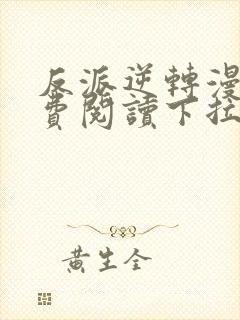 反派逆轉漫
費閱讀下拉
黃生全